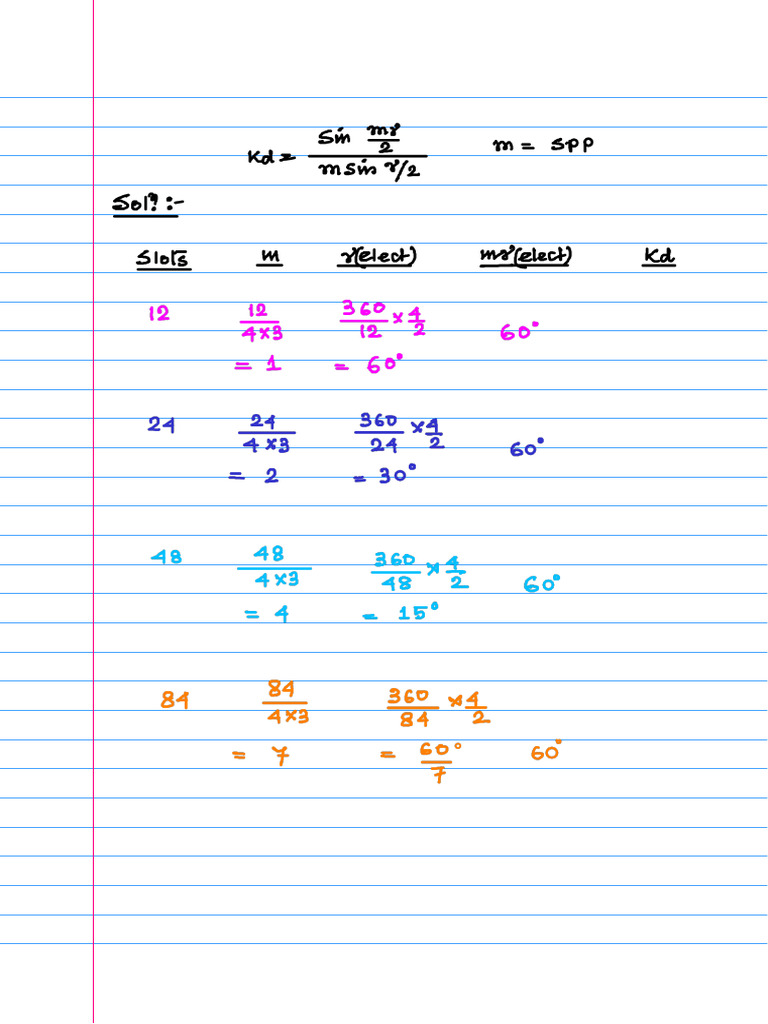 Kd = sin mγ/2 / m sin γ/2 m = spp
Solⁿ :-
Slots m γ(elect) mγ(elect) Kd
12 12/4×3 360/12 × 4/2 60°
= 1 = 60°
24 24/4×3 360/24 × 4/2 60°
= 2 = 30°
48 48/4×3 360/48 × 4/2 60°
= 4 = 15°
84 84/4×3 360/84 × 4/2
= 7 = 60°/7 60°